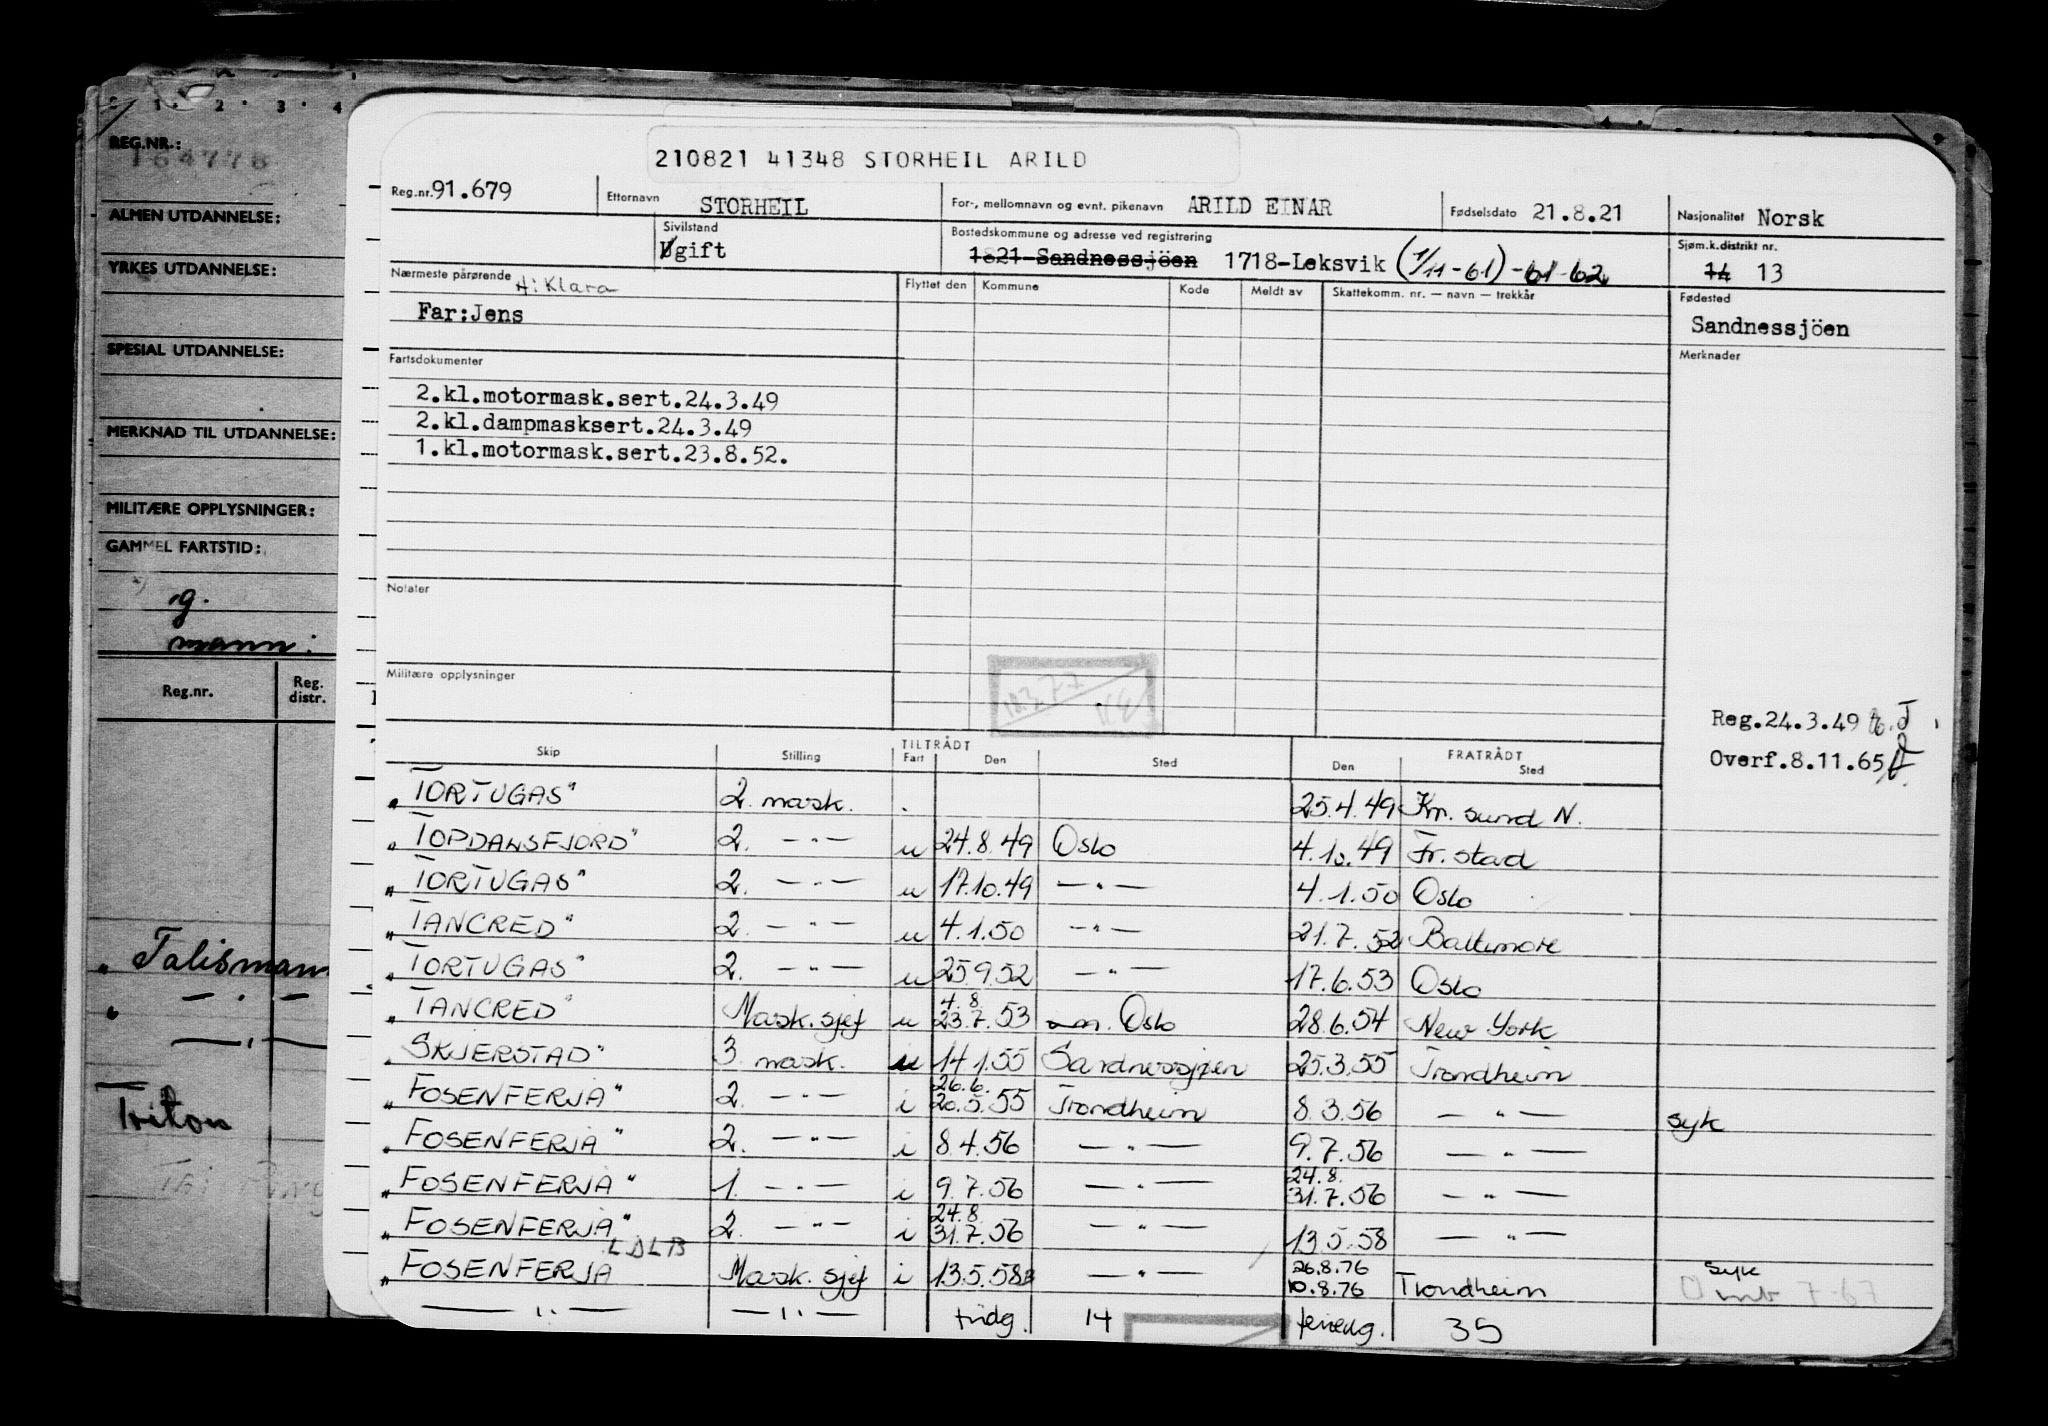 1 · 2 · 3 · 4
REG.NR.:
164778
ALMEN UTDANNELSE:
YRKES UTDANNELSE:
SPESIAL UTDANNELSE:
MERKNAD TIL UTDANNELSE:
MILITÆRE OPPLYSNINGER:
GAMMEL FARTSTID:
g.
mann:
Reg.nr. Reg. distr.
„ Talismann
„ — . —
— . —
Triton
210821 41348 STORHEIL ARILD
Reg.nr. 91.679 Etternavn STORHEIL For-, mellomnavn og evnt. pikenavn ARILD EINAR Fødselsdato 21.8.21 Nasjonalitet Norsk
Sivilstand Ugift Bostedskommune og adresse ved registrering 1821-Sandnessjöen 1718-Leksvik (1/11-61)-61-62 Sjøm.k.distrikt nr. 14 13
Nærmeste pårørende H: Klara Flyttet den Kommune Kode Meldt av Skattekomm. nr. — navn — trekkår Fødested
Far:Jens Sandnessjöen
Fartsdokumenter Merknader
2.kl.motormask.sert.24.3.49
2.kl.dampmasksert.24.3.49
1.kl.motormask.sert.23.8.52.
Notater
Militære opplysninger
18.3.77
Reg.24.3.49
Overf.8.11.65
TILTRÅDT FRATRÅDT
Skip Stilling Fart Den Sted Den Sted
„TORTUGAS" 2. mask. 25.4.49 Kr. sund N.
„TOPDALSFJORD" 2. — " — u 24.8.49 Oslo 4.10.49 Fr. stad
„TORTUGAS" 2. — " — u 17.10.49 — " — 4.1.50 Oslo
„TANCRED" 2. — " — u 4.1.50 — " — 21.7.52 Baltimore
„TORTUGAS" 2. — " — u 25.9.52 — " — 17.6.53 Oslo
4.8.
„TANCRED" Mask. sjef u 23.7.53 Oslo 28.6.54 New York
„SKJERSTAD" 3. mask. u 14.1.55 Sandnessjøen 25.3.55 Trondheim
26.6.
„FOSENFERJA" 2. — " — i 20.5.55 Trondheim 8.3.56 — " — syk
„FOSENFERJA" 2. — " — i 8.4.56 — " — 9.7.56 — " —
24.8.
„FOSENFERJA" 1. — " — i 9.7.56 — " — 31.7.56 — " —
24.8.
„FOSENFERJA" 2. — " — i 31.7.56 — " — 13.5.58 — " —
LDLB 26.8.76 syk
„FOSENFERJA Mask. sjef i 13.5.58 — " — 10.8.76 Trondheim
— " — — " — tridg. 14 feriedg. 35